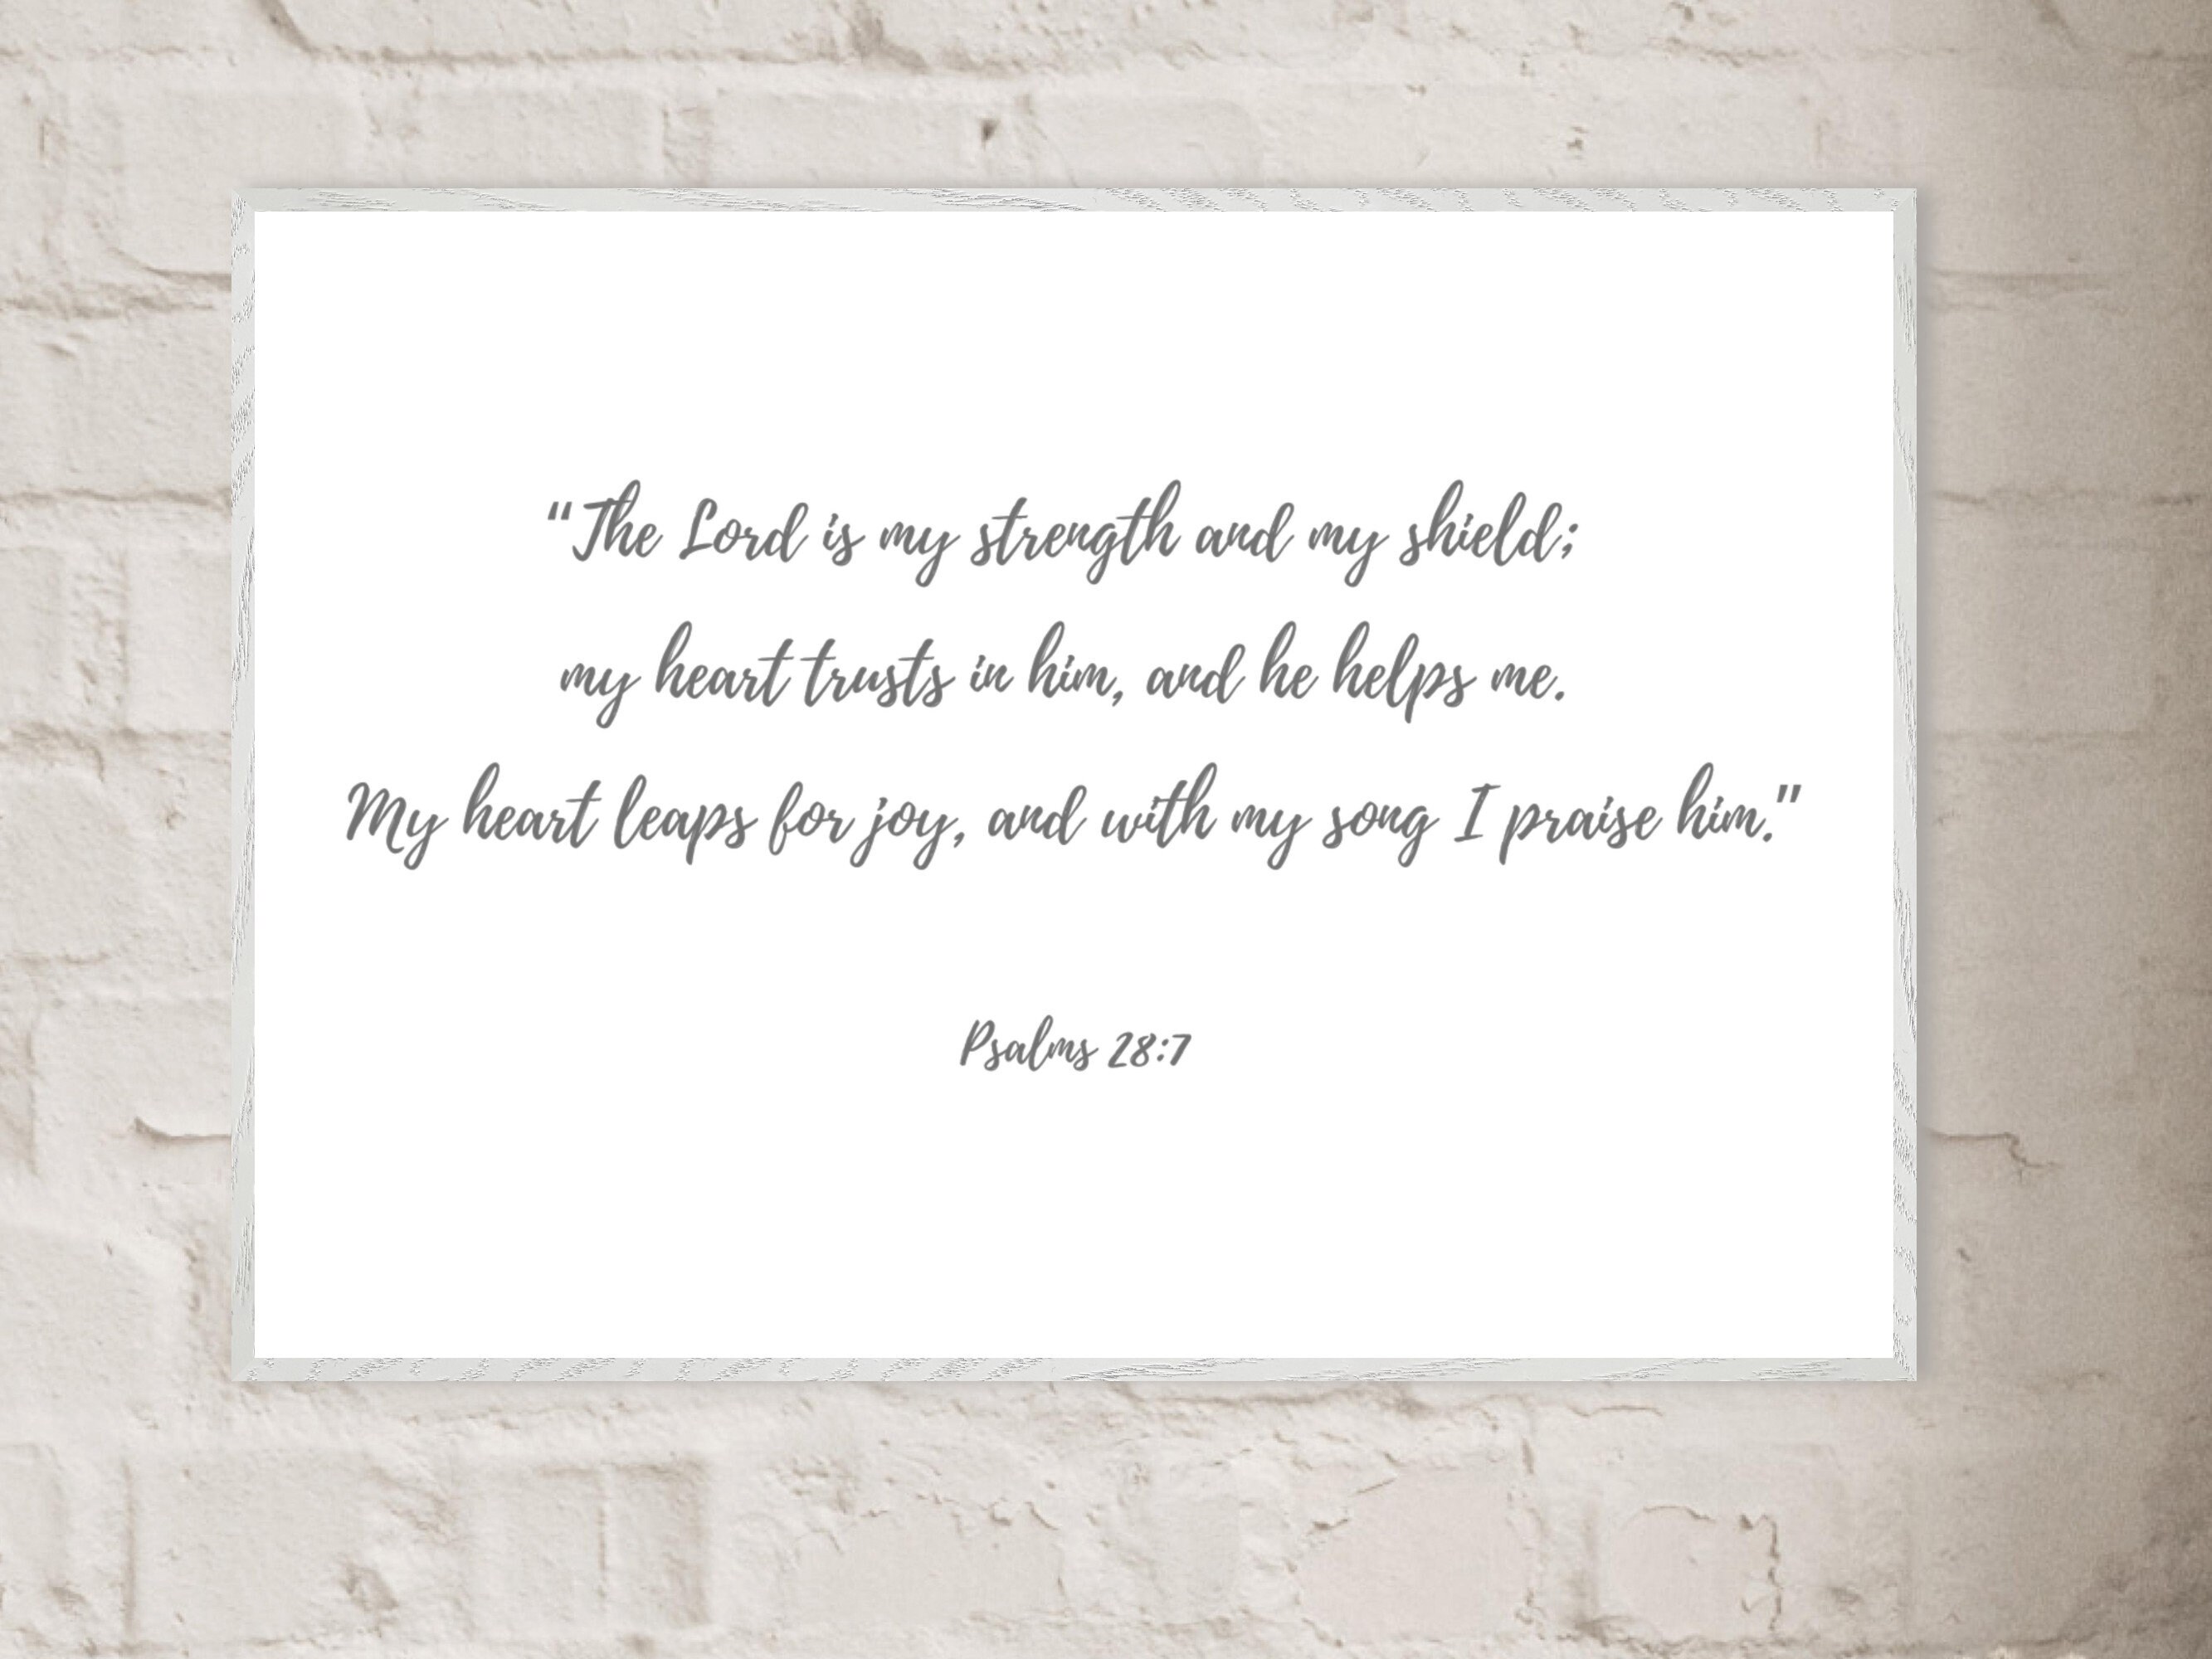 “The Lord is my strength and my shield;
my heart trusts in him, and he helps me.
My heart leaps for joy, and with my song I praise him.”
Psalms 28:7